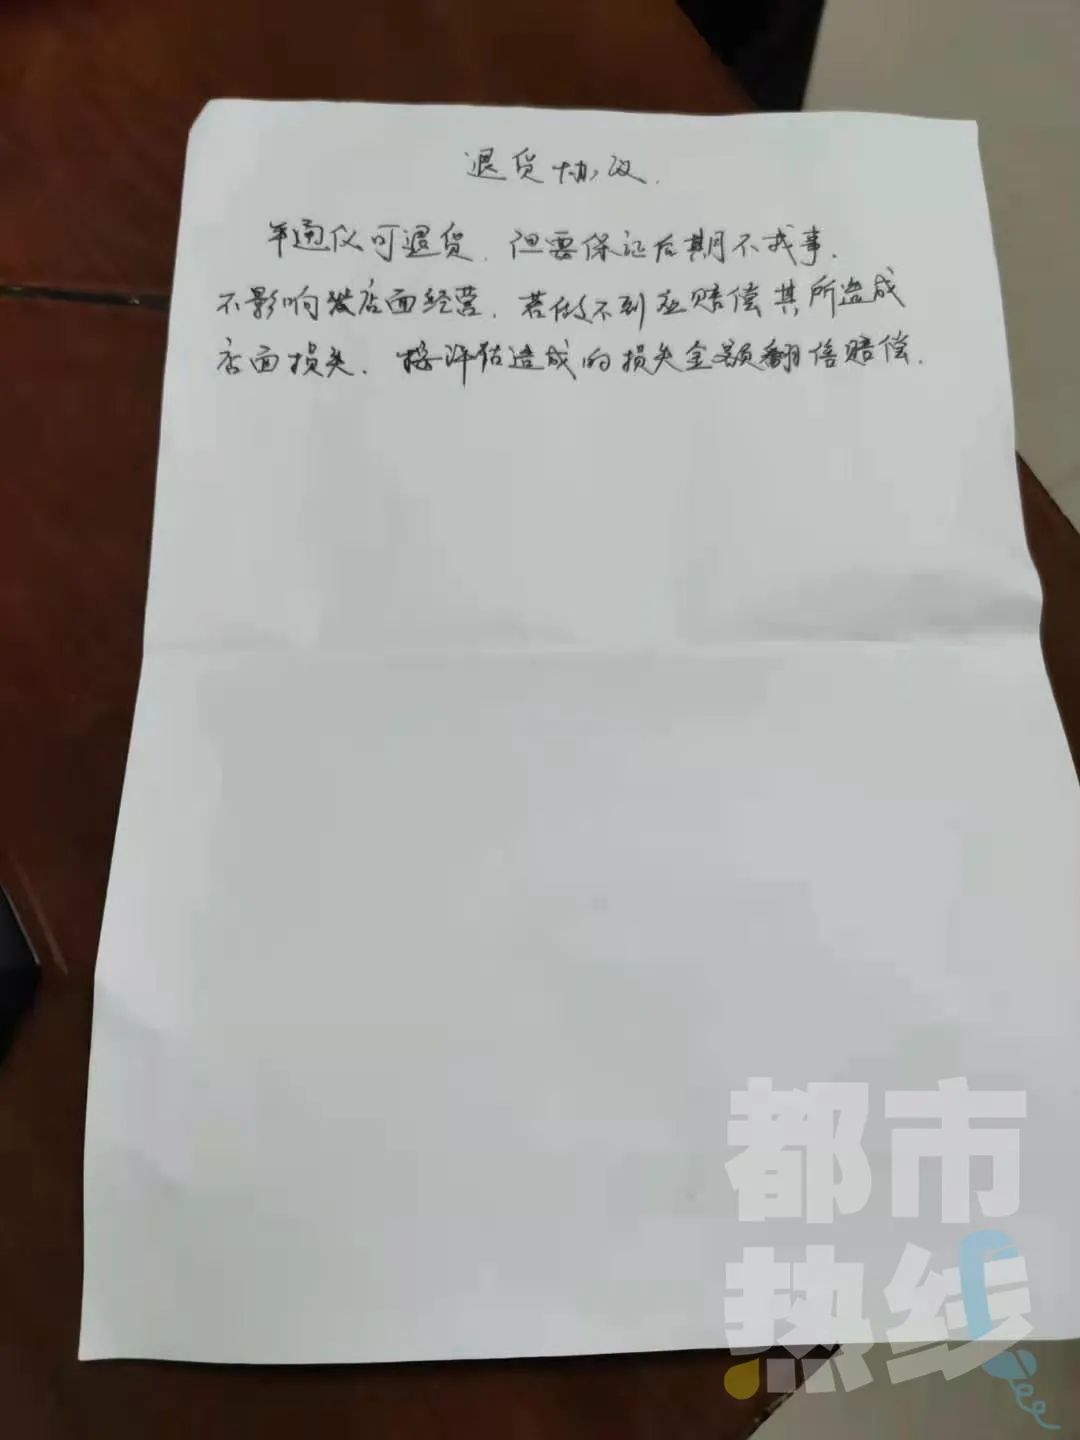 退货协议.
年通仪可退货.但要保证后期不找事.
不影响发店面经营.若做不到应赔偿其所造成
店面损失.按评估造成的损失金额翻倍赔偿.
都市
热线